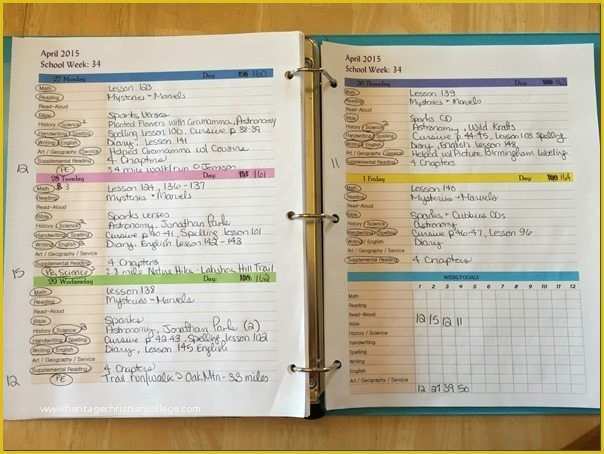 April 2015
School Week: 34
27 Monday Day: 160
Math Lesson 123
Reading Mysteries + Marvels
Read-Aloud
Bible Sparks Verses
History Science 2 Planted Flowers with Gramamma, Astronomy
Handwriting Spelling Spelling Lesson 100, Cursive p 38-39
Writing English Diary, Lesson 141
Art / Geography / Service Helped Gramamma w/ Cousins
Supplemental Reading 4 Chapters
12 PE 3.4 mile walk/run
28 Tuesday Day: 161
Math 3 Lesson 124, 136-137
Reading Mysteries + Marvels
Read-Aloud
Bible Sparks verses
History Science Astronomy, Jonathan Park
Handwriting Spelling Cursive p 40-41, Spelling lesson 101
Writing English Diary, English Lesson 142-143
Art / Geography / Service
Supplemental Reading 4 Chapters
15 PE, Science Nature Hike - Lakeshore Hill Trail
29 Wednesday Day: 162
Math Lesson 138
Reading Mysteries + Marvels
Read-Aloud
Bible Sparks
History Science 3 Astronomy, Jonathan Park (2)
Handwriting Spelling Cursive p 42-43, Spelling lesson 102
Writing English Diary, Lesson 145 English
Art / Geography / Service
Supplemental Reading 4 Chapters
12 PE Trail run/walk Oak Mtn - 3.3 miles
April 2015
School Week: 34
30 Thursday Day:
Math Lesson 139
Reading Mysteries + Marvels
Read-Aloud
Bible Sparks CD
History Science 2 Astronomy, Wild Kratts
Handwriting Spelling Cursive p 44-45, Lesson 103 Spelling
Writing English Diary, English lesson 148
Art / Geography / Service Helped w/ Picture, Birmingham
11 Supplemental Reading 4 Chapters
1 Friday Day: 164
Math Lesson 140
Reading Mysteries + Marvels
Read-Aloud
Bible Sparks + Cubbies CDs
History Science Astronomy
Handwriting Spelling Cursive p 46-47, Lesson 96
Writing English Diary
Art / Geography / Service
Supplemental Reading 4 Chapters
WEEKLY GOALS
1 2 3 4 5 6 7 8 9 10 11 12
Math
Reading
Read-Aloud
Bible 12 15 12 11
History / Science
Handwriting / Spelling
Writing / English
Art / Geography / Service
Supplemental Reading
12 27 39 50
www.heritagechristiancollege.com